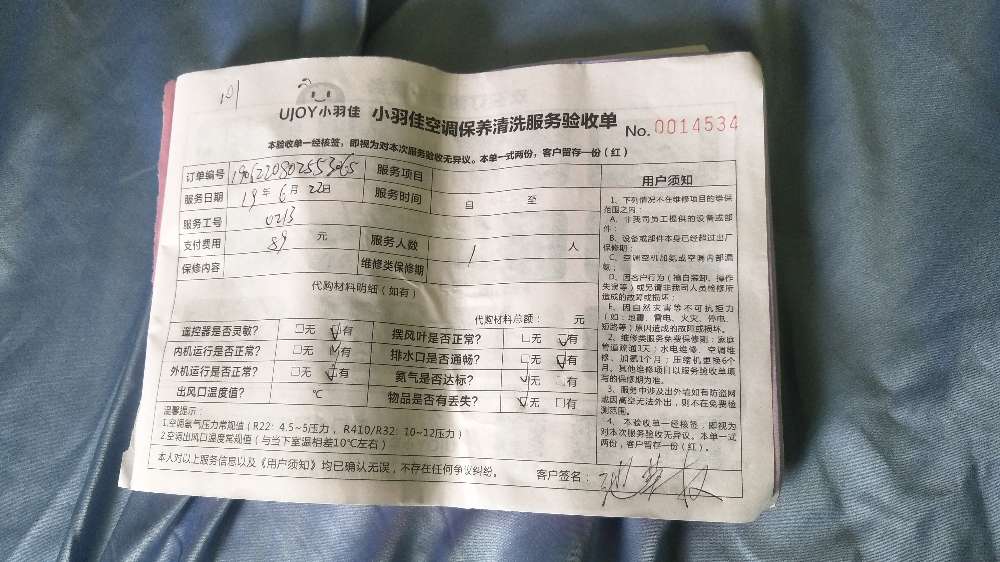 UJOY小羽佳 小羽佳空调保养清洗服务验收单 No.0014534
本验收单一经核签，即视为对本次服务验收无异议。本单一式两份，客户留存一份（红）
订单编号 服务项目
服务日期 19年6月22日 服务时间 自 至
服务工号 0213
支付费用 89 元 服务人数 1 人
保修内容 维修类保修期
代购材料明细（如有）
代购材料总额： 元
遥控器是否灵敏？ □无 □有 摆风叶是否正常？ □无 □有
内机运行是否正常？ □无 □有 排水口是否通畅？ □无 □有
外机运行是否正常？ □无 □有 氨气是否达标？ □无 □有
出风口温度值？ ℃ 物品是否有丢失？ □无 □有
温馨提示：
1.空调氨气压力常规值（R22：4.5~5压力，R410/R32：10~12压力）
2.空调出风口温度常规值（与当下室温相差10℃左右）
本人对以上服务信息以及《用户须知》均已确认无误，不存在任何争议纠纷。 客户签名：
用户须知
1、下列情况不在维修项目的维保
范围之内：
A、非我司员工提供的设备或部
件；
B、设备或部件本身已经超过出厂
保修期；
C、空调空机加氨或空调内部漏
氨；
D、因客户行为（擅自装卸、操作
失误等）或另请非我司人员检修所
造成的故障或损坏；
E、因自然灾害等不可抗拒力
（如：地震、雷电、火灾、停电、
短路等）原因造成的故障或损坏。
2、维修类服务免费保修期：家庭
管道疏通3天；水电维修、空调维
修、加氨1个月；压缩机更换6个
月。其他维修项目以服务验收单填
写的保修期为准。
3、服务中涉及出外墙如有防盗网
或因高空无法外出，则不在免费检
测范围。
4、本验收单一经核签，即视为
对本次服务验收无异议。本单一式
两份，客户留存一份（红）。